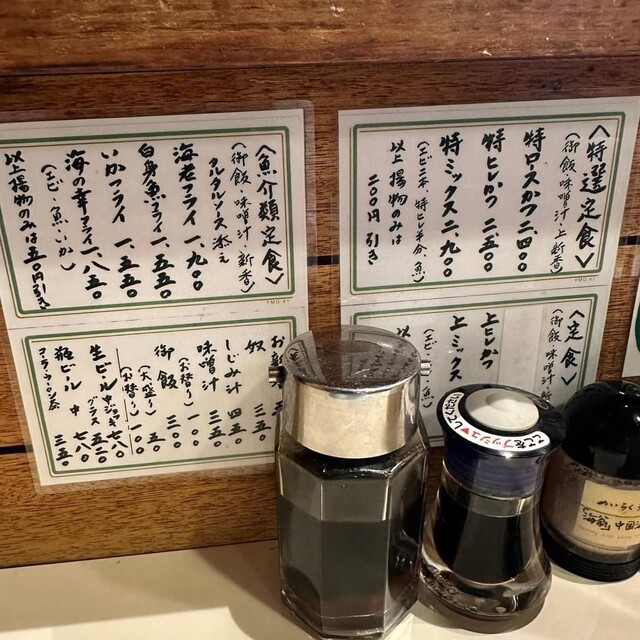 〈特選定食〉
(御飯・味噌汁・上新香)
特ロースかつ 二、四〇〇
特ヒレかつ 二、五〇〇
特ミックス 二、九〇〇
(エビ二本・特ヒレ半分・魚)
以上 揚物のみは
二〇〇円引き
〈魚介類定食〉
(御飯・味噌汁・新香)
タルタルソース添え
海老フライ 一、九〇〇
白身魚フライ 一、五五〇
いかフライ 一、五五〇
海の幸フライ 一、八五〇
(エビ・魚・いか)
以上揚物のみは五〇円引き
〈定食〉
(御飯・味噌汁・新
上ヒレかつ
上ミックス
(エビ・魚・
以上
お新
奴 三五
しじみ汁 四五
味噌汁 三五〇
(お替り) 一〇〇
御飯 三〇〇
(大盛り) 五〇
(お替り) 一〇〇
生ビール 中ジョッキ 七八〇
グラス 五二〇
瓶ビール 中 七八〇
コーラ・ウーロン茶 三五〇
ここをプッシュ♥してください
めいらく
海館 中国